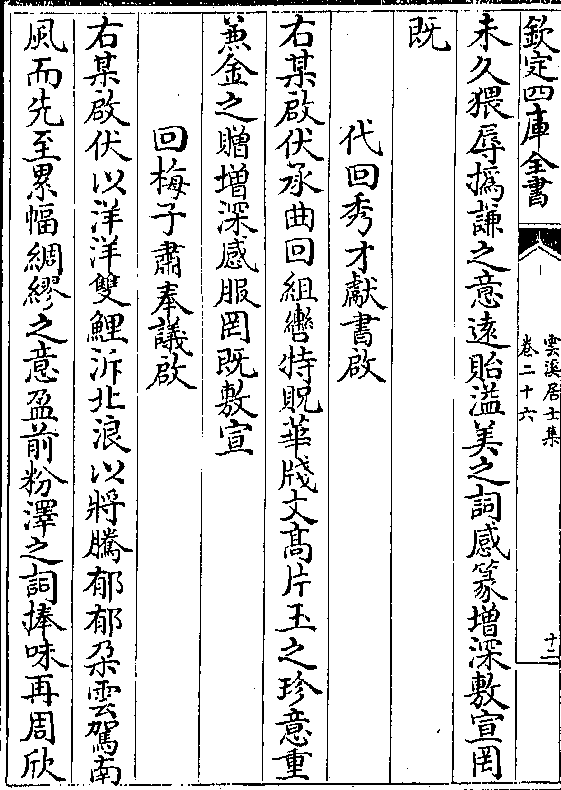 欽定四庫全書
雲溪居士集
卷二十六
十二
未久猥辱撝謙之意遠貽溢美之詞感篆增深敷宣罔
既
代回秀才獻書啟
右某啟伏承曲回組轡特貺華牋文髙片玉之珍意重
兼金之贈增深感服罔既敷宣
回梅子肅奉議啟
右某啟伏以洋洋雙鯉泝北浪以將騰郁郁朶雲駕南
風而先至累幅綢繆之意盈前粉澤之詞捧味再周欣